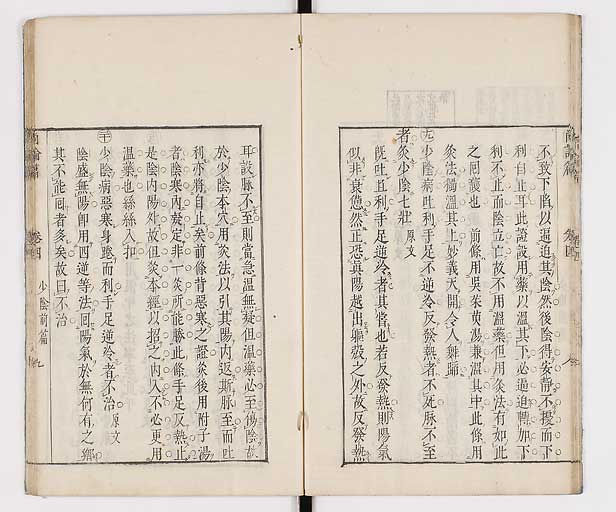 不致下陷以逼迫其陰然後陰得安靜不擾而下
利自止耳此證設用藥以溫其下必逼迫轉加下
利不止而陰立亡故不用溫藥但用灸法有如此
之回護也前條用吳茱萸湯兼溫其中此條用
灸法獨溫其上妙義天開令人舞蹈
少陰病吐利手足不逆冷反發熱者不死脈不至
者灸少陰七壯原文
既吐且利手足逆冷者其常也若反發熱則陽氣
似非衰憊然正恐真陽越出軀殼之外故反發熱
耳設脈不至則當急溫無疑但溫藥必至傷陰故
於少陰本穴用灸法以引其陽內返斯脈至而吐
利亦將自止矣前條背惡寒之證灸後用附子湯
者陰寒內凝定非一灸所能勝此條手足反熱止
是陰內陽外故但灸本經以招之內入不必更用
溫藥也絲絲入扣
少陰病惡寒身踡而利手足逆冷者不治原文
陰盛無陽即用四逆等法回陽氣於無何有之鄉
其不能回者多矣故曰不治
尚論篇
卷四
少陰前篇